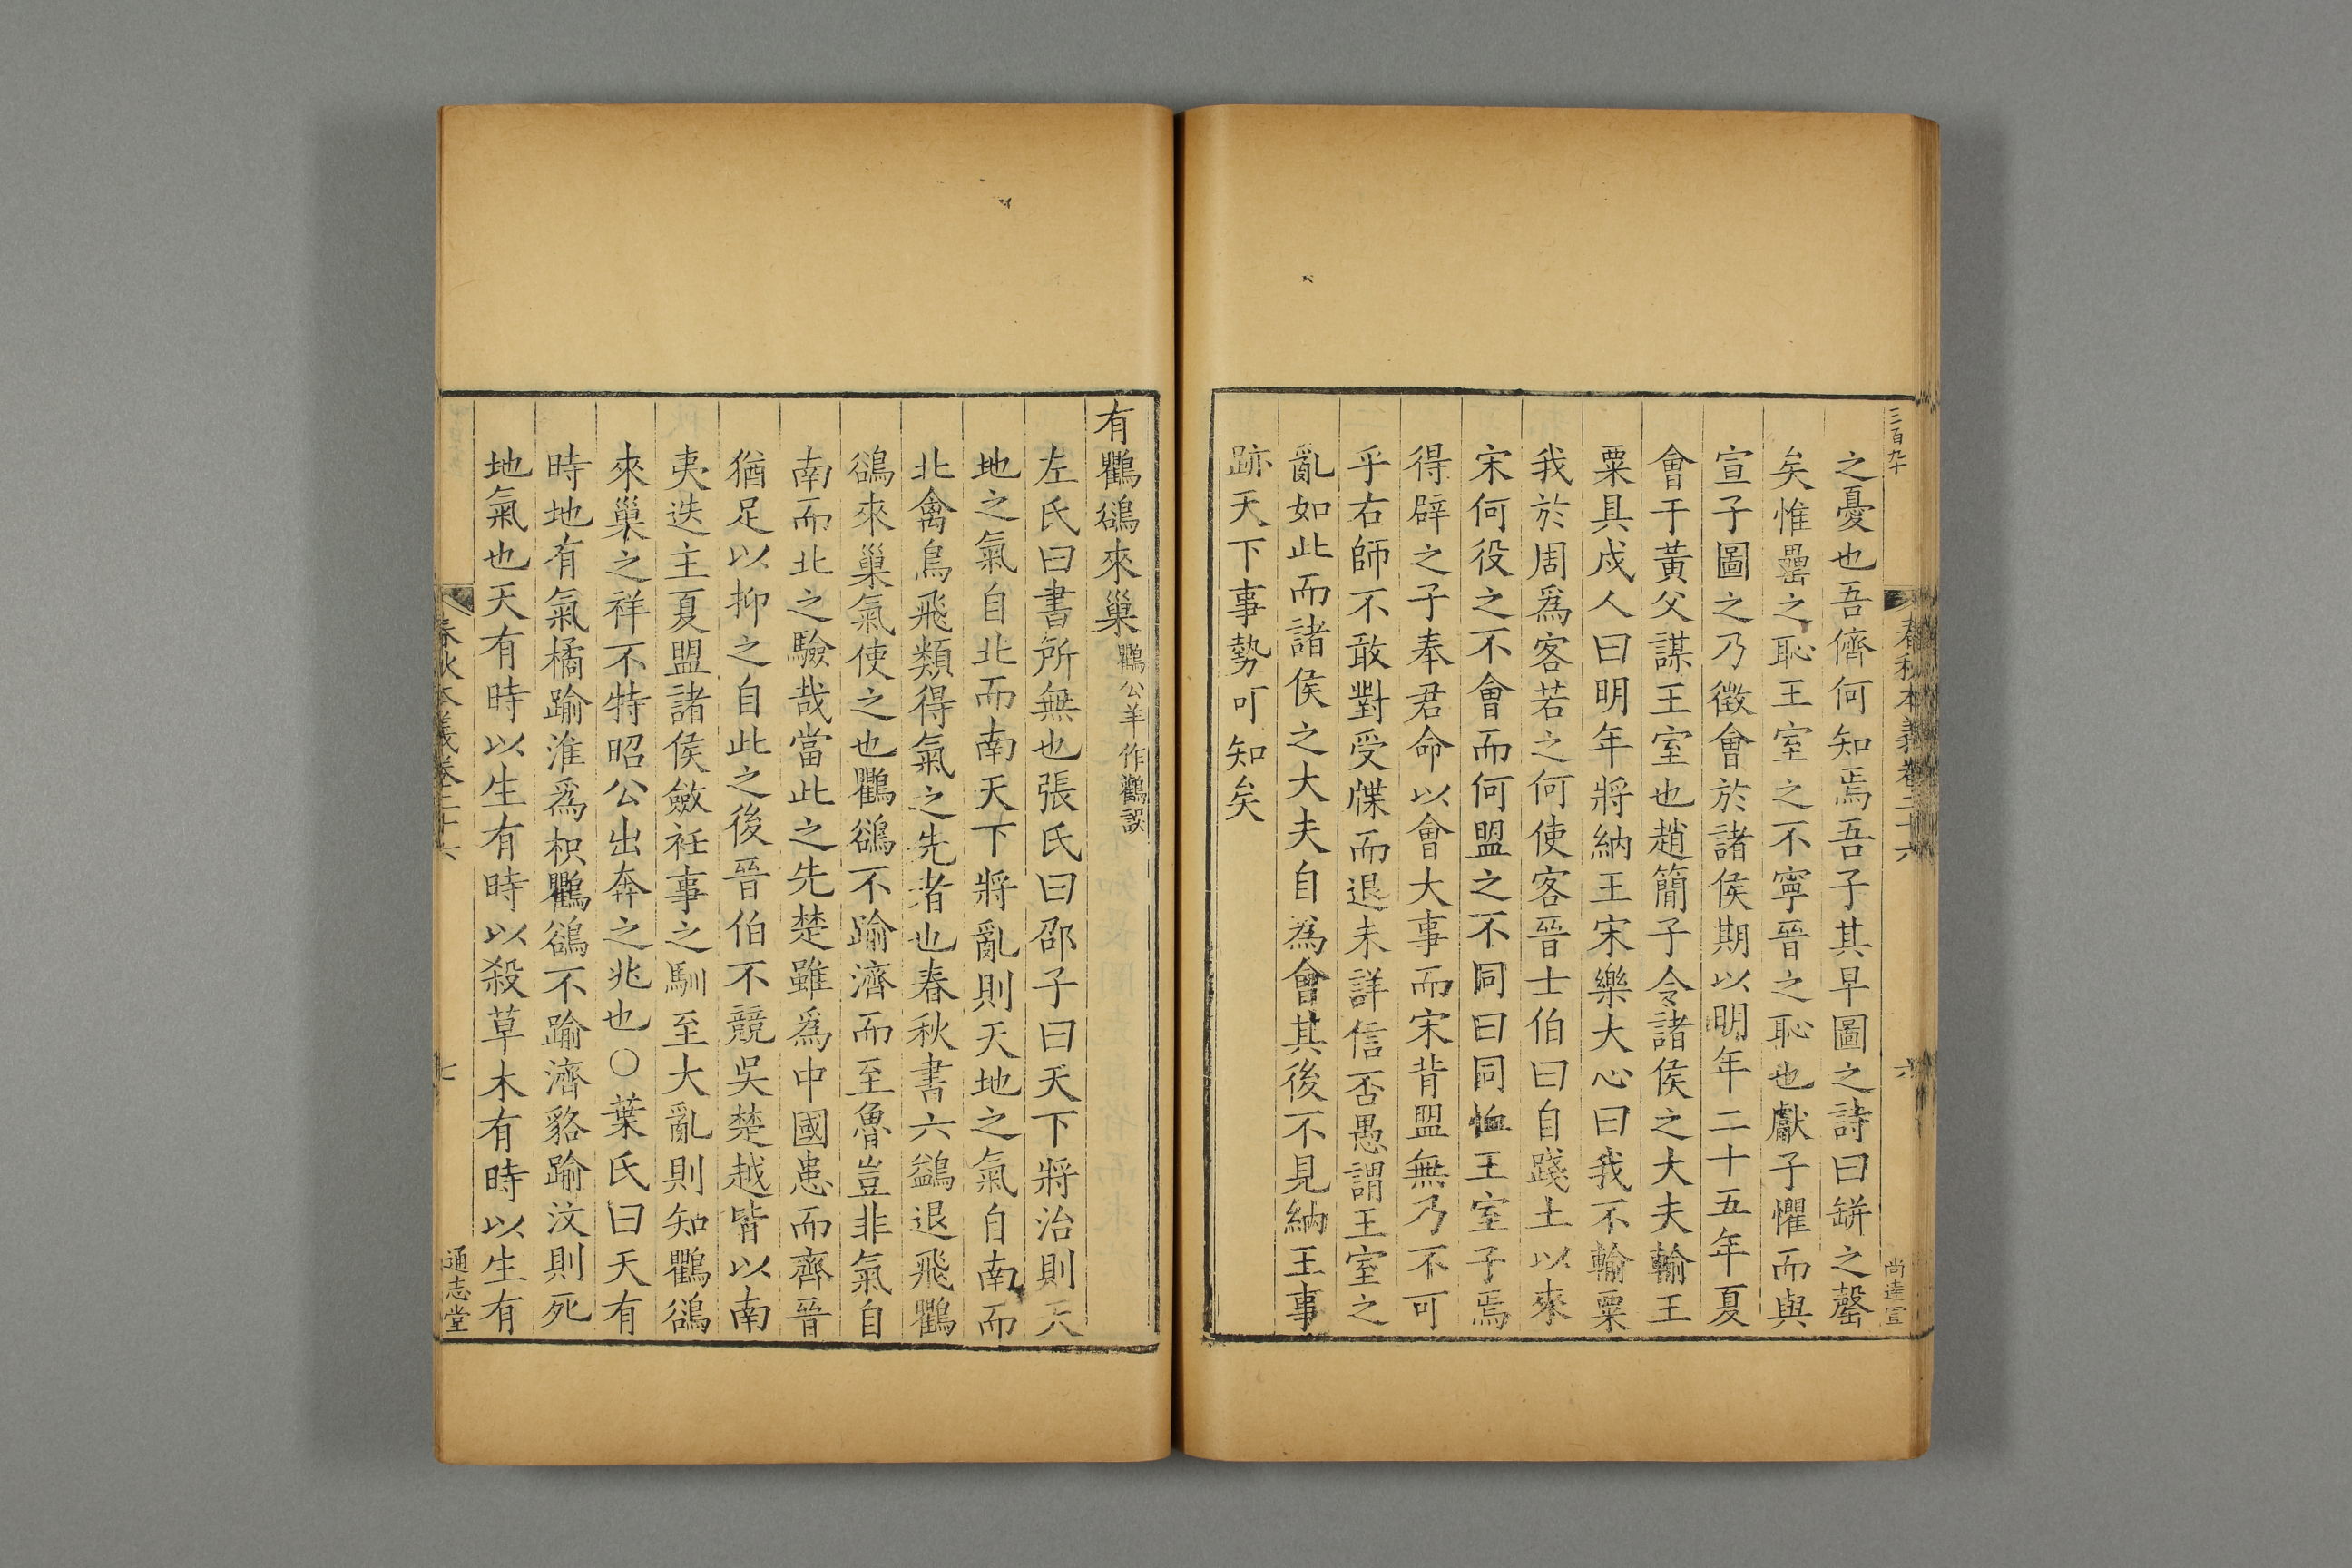 三百九十
春秋本義卷二十六
六
尚達宣
之憂也吾儕何知焉吾子其早圖之詩曰缾之罄
矣惟罍之恥王室之不寧晉之恥也獻子懼而與
宣子圖之乃徵會於諸侯期以明年二十五年夏
會于黃父謀王室也趙簡子令諸侯之大夫輸王
粟具戍人曰明年將納王宋樂大心曰我不輸粟
我於周爲客若之何使客晉士伯曰自踐土以來
宋何役之不會而何盟之不同曰同恤王室子焉
得辟之子奉君命以會大事而宋背盟無乃不可
乎右師不敢對受牒而退未詳信否愚謂王室之
亂如此而諸侯之大夫自為會其後不見納王事
跡天下事勢可知矣
有鸜鵒來巢鸜公羊作鸛誤
左氏曰書所無也張氏曰邵子曰天下將治則天
地之氣自北而南天下將亂則天地之氣自南而
北禽鳥飛類得氣之先者也春秋書六鷁退飛鸜
鵒來巢氣使之也鸜鵒不踰濟而至魯豈非氣自
南而北之驗哉當此之先楚雖爲中國患而齊晉
猶足以抑之自此之後晉伯不競吳楚越皆以南
夷迭主夏盟諸侯斂衽事之馴至大亂則知鸜鵒
來巢之祥不特昭公出奔之兆也○葉氏曰天有
時地有氣橘踰淮爲枳鸜鵒不踰濟貉踰汶則死
地氣也天有時以生有時以殺草木有時以生有
春秋本義卷二十六
七
通志堂